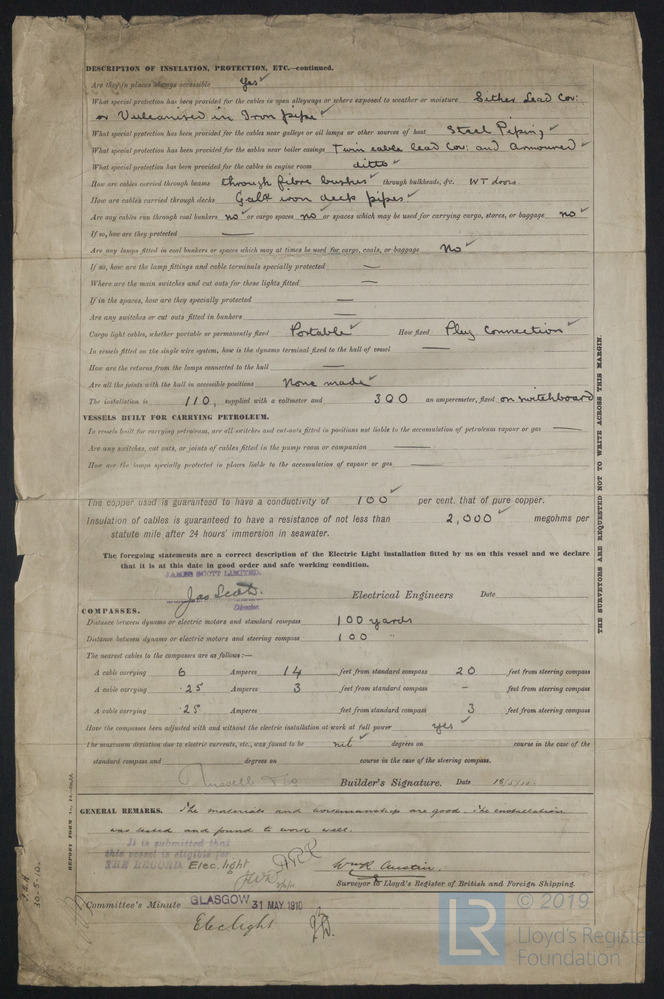 DESCRIPTION OF INSULATION, PROTECTION, ETC.—continued.
Are they in places always accessible Yes ✓
What special protection has been provided for the cables in open alleyways or where exposed to weather or moisture Either Lead Cov:
or Vulcanised in Iron pipe ✓
What special protection has been provided for the cables near galleys or oil lamps or other sources of heat Steel Piping ✓
What special protection has been provided for the cables near boiler casings Twin cable lead Cov: and Armoured ✓
What special protection has been provided for the cables in engine room ditto ✓
How are cables carried through beams through fibre bushes ✓ through bulkheads, &c. WT doors.
How are cables carried through decks Galx iron deck pipes ✓
Are any cables run through coal bunkers no ✓ or cargo spaces no ✓ or spaces which may be used for carrying cargo, stores, or baggage no ✓
If so, how are they protected —
Are any lamps fitted in coal bunkers or spaces which may at times be used for cargo, coals, or baggage No ✓
If so, how are the lamp fittings and cable terminals specially protected —
Where are the main switches and cut outs for these lights fitted —
If in the spaces, how are they specially protected —
Are any switches or cut outs fitted in bunkers —
Cargo light cables, whether portable or permanently fixed Portable ✓ How fixed Plug Connection ✓
In vessels fitted on the single wire system, how is the dynamo terminal fixed to the hull of vessel —
How are the returns from the lamps connected to the hull —
Are all the joints with the hull in accessible positions None made ✓
The installation is 110, supplied with a voltmeter and 300 an amperemeter, fixed on switchboard
VESSELS BUILT FOR CARRYING PETROLEUM.
In vessels built for carrying petroleum, are all switches and cut-outs fitted in positions not liable to the accumulation of petroleum vapour or gas —
Are any switches, cut outs, or joints of cables fitted in the pump room or companion —
How are the lamps specially protected in places liable to the accumulation of vapour or gas —
The copper used is guaranteed to have a conductivity of 100 ✓ per cent. that of pure copper.
Insulation of cables is guaranteed to have a resistance of not less than 2,000 ✓ megohms per
statute mile after 24 hours' immersion in seawater.
The foregoing statements are a correct description of the Electric Light installation fitted by us on this vessel and we declare
that it is at this date in good order and safe working condition.
JAMES SCOTT LIMITED.
Jas Scott Electrical Engineers Date
Director.
COMPASSES.
Distance between dynamo or electric motors and standard compass 100 yards
Distance between dynamo or electric motors and steering compass 100 "
The nearest cables to the compasses are as follows:—
A cable carrying 6 Amperes 14 feet from standard compass 20 feet from steering compass
A cable carrying .25 Amperes 3 feet from standard compass - feet from steering compass
A cable carrying .25 Amperes feet from standard compass 3 feet from steering compass
Have the compasses been adjusted with and without the electric installation at work at full power yes ✓
The maximum deviation due to electric currents, etc., was found to be nil ✓ degrees on course in the case of the
standard compass and degrees on course in the case of the steering compass.
Russell & Co Builder's Signature. Date 18/5/10
GENERAL REMARKS. The materials and workmanship are good. The installation
was tested and found to work well.
It is submitted that
this vessel is eligible for
THE RECORD. Elec. light
Wm R Austin
Surveyor to Lloyd's Register of British and Foreign Shipping.
Committee's Minute GLASGOW 31 MAY 1910
Elec light
THE SURVEYORS ARE REQUESTED NOT TO WRITE ACROSS THIS MARGIN.
30-5-10.
© 2019
LR Lloyd's Register
Foundation